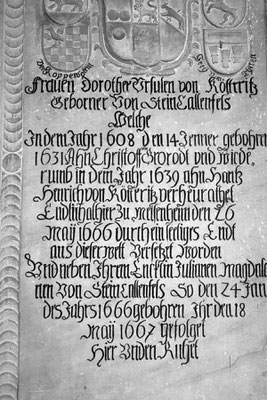 Frauen Dorothee Ursulen von Kötteritz
Geborner Von Stein Callenfels
Welche
In dem Jahr 1608 den 14 Jenner gebohren
1631 Ahn Christoff und Wiede
rumb in dem Jahr 1639 ahn Hantz
Henrich von Kötteritz verheurathet
Endtlich alhier Zu Meisenheim den 26
Maÿ 1666 durch ein seeliges Endt
aus dieser welt Versetzt Worden
Vnd neben Ihrem Encklin Julianen Magdale
nen Von Stein Callenfels So den 24 Jan
des Jahrs 1666 gebohren Ihr den 18
Maÿ 1667 gefolget
Hier Vnden Ruhet